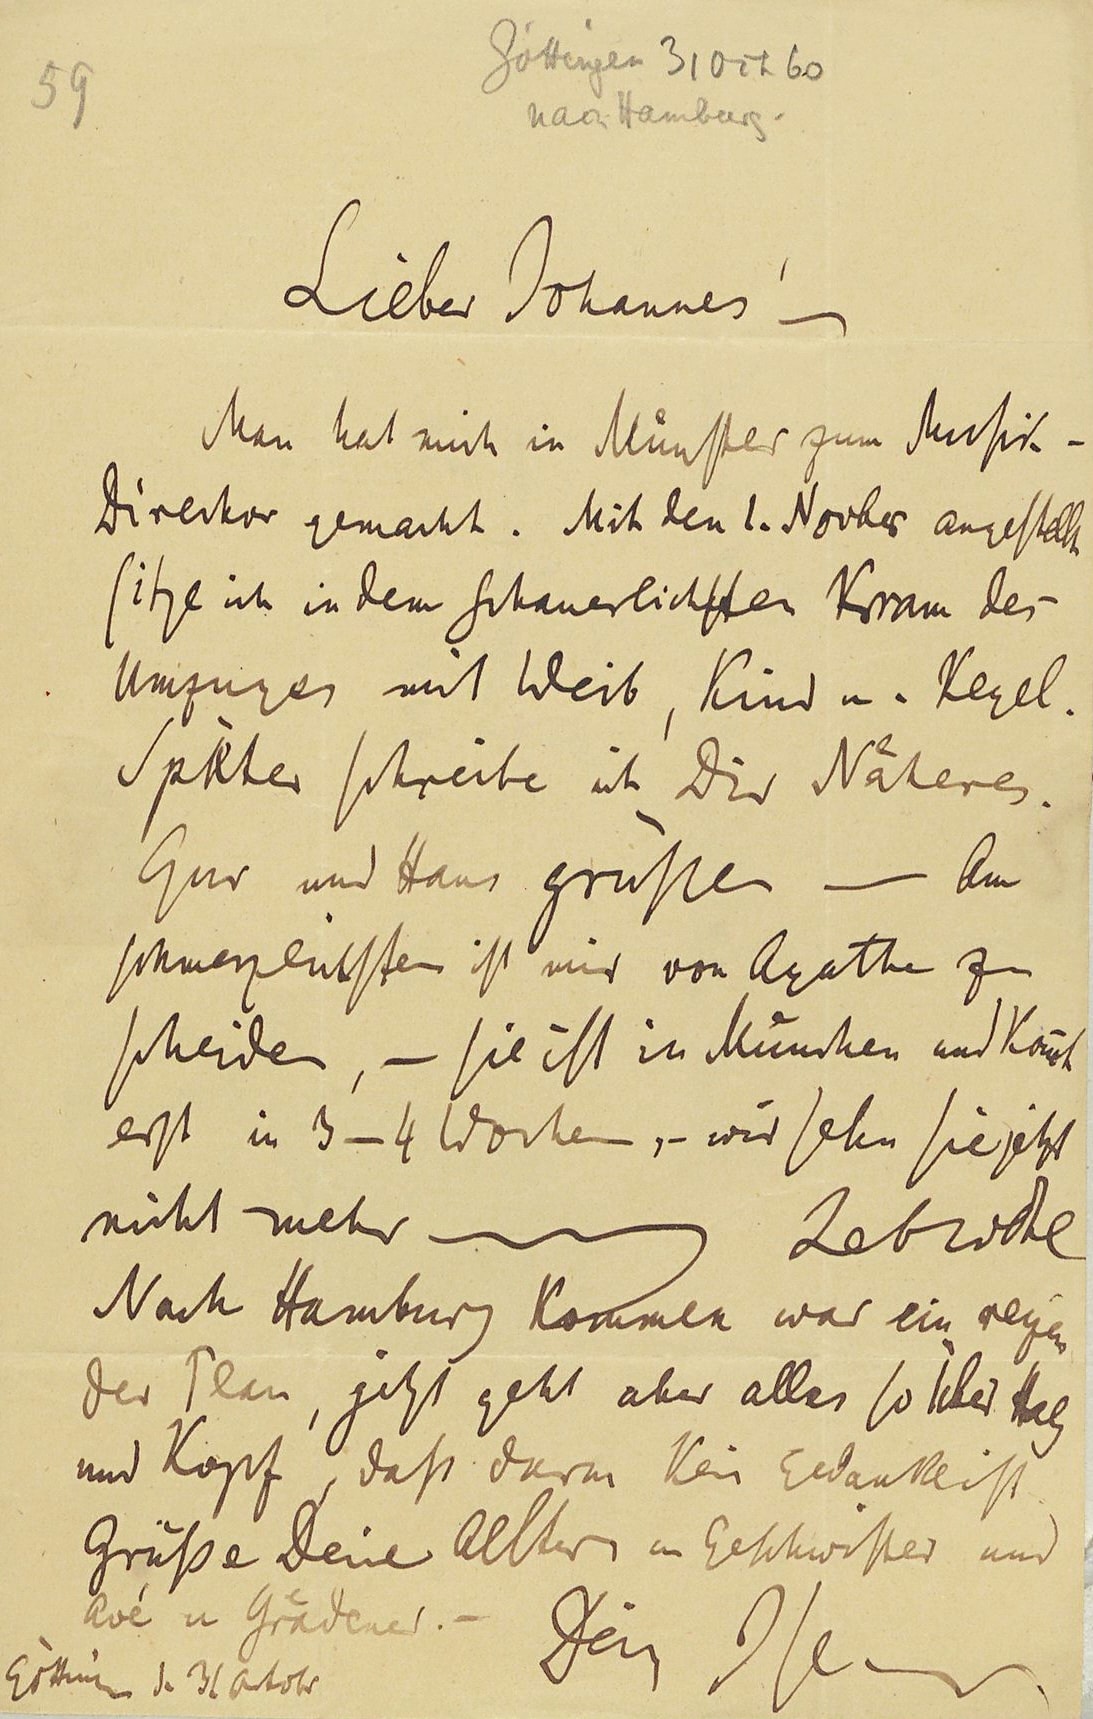 59
Göttingen 31 Oct 60
nach Hamburg.
Lieber Johannes! –
Man hat mich in Münster zum Musik-
Direcktor gemacht. Mit den 1. Novber angestellt
sitze ich in dem schauerlichsten Krram des
Umzuges mit Weib, Kind u. Kegel.
Später schreibe ich Dir Näheres.
Gur und Hans grüßen — Am
schmerzlichsten ist mir von Agathe zu
scheiden, – sie ist in München und kom̄t
erst in 3–4 Wochen, – wir sehn sie jetzt
nicht mehr — Lebwohl
Nach Hamburg kommen war ein reizen
der Plan, jetzt geht aber alles so über Hals
und Kopf, daß daran kein Gedanke ist
Grüße Deine Aeltern u Geschwister und
Avé u Grädener. –
Dein Ise
Göttingen d. 31 Octobr